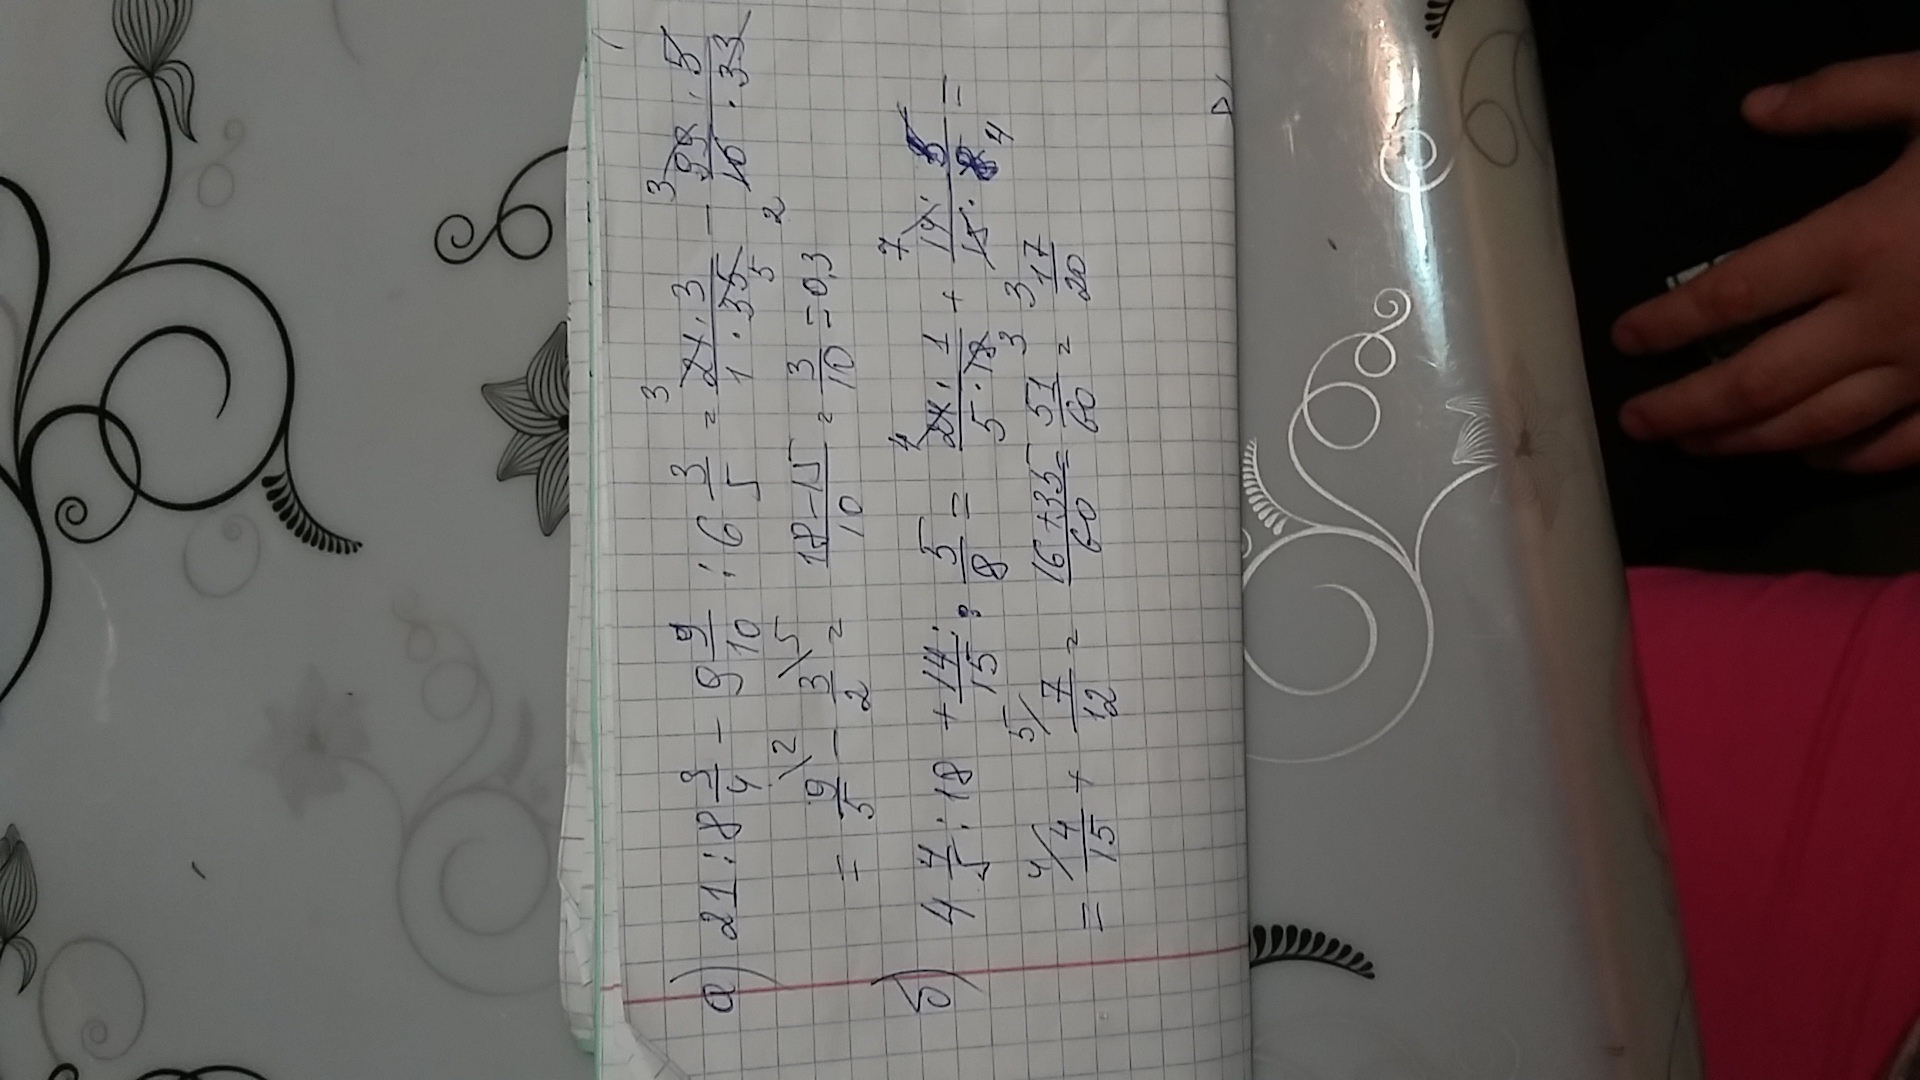 а) 21 : 8 3/4 - 9 9/10 : 6 3/5 = 21 · 3 / 1 · 35 - 99 · 5 / 10 · 33
3 5 3 2
= 9/5 \2 - 3/2 \5 = 18-15/10 = 3/10 = 0,3
б) 4 4/5 : 18 + 14/15 : 5/8 = 24 · 1 / 5 · 18 + 14 · 5 / 15 · 8 =
4 3 7 4
= 4/ 4/15 + 5/ 7/12 = 16+35/60 = 51/60 = 3 17/20